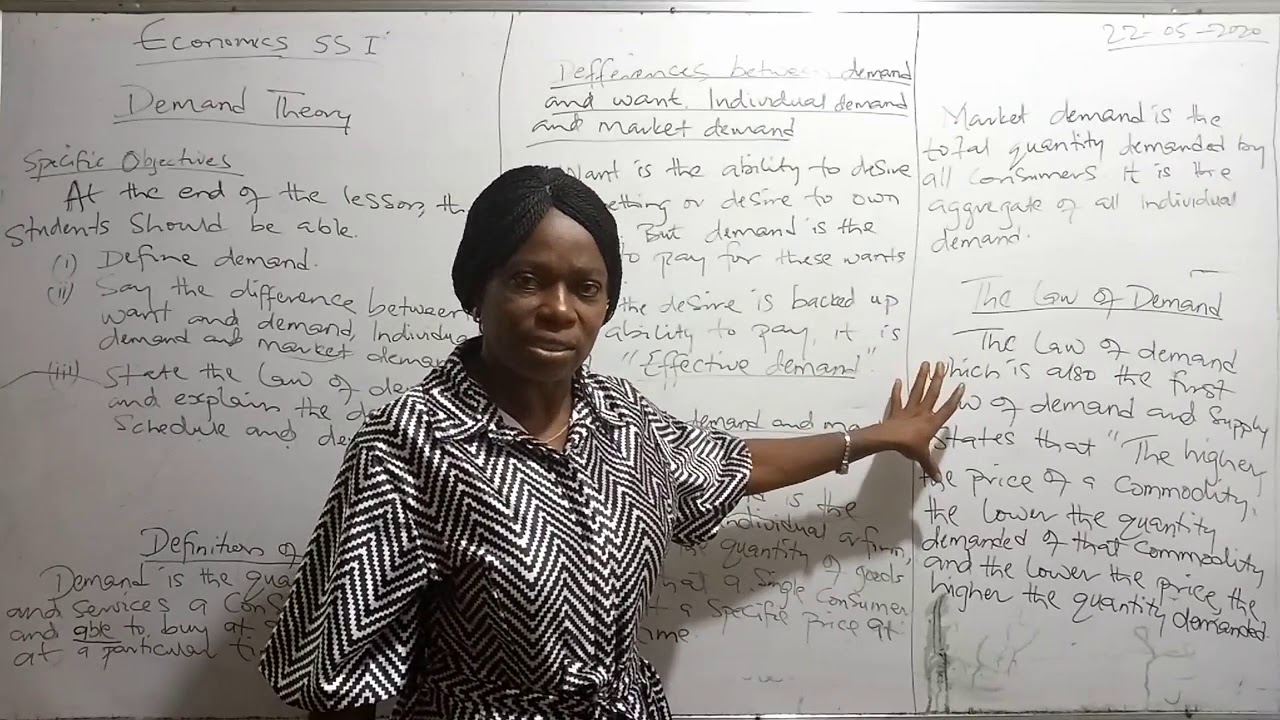 Economics SS I
Demand Theory
Specific Objectives
At the end of the lesson, th
students should be able.
(i) Define demand.
(ii) Say the difference between
want and demand, Individua
demand and market deman
(iii) State the law of de
and explain the de
Schedule and de
Definition of
Demand is the qua
and services a cons
and able to buy at
at a particular ti
Defferences between demand
and want, Individual demand
and market demand
Want is the ability to desire
ething or desire to own
But demand is the
to pay for these wants
the desire is backed up
ability to pay, it is
"Effective demand".
demand and ma
is the
individual or firm,
the quantity of goods
that a single consumer
t a specific price at
ime.
22-05-2020
Market demand is the
total quantity demanded by
all consumers it is the
aggregate of all individual
demand.
The Law of Demand
The Law of demand
which is also the first
w of demand and supply
states that "The higher
the price of a commodity,
the lower the quantity
demanded of that commodity
and the lower the price, the
higher the quantity demanded.